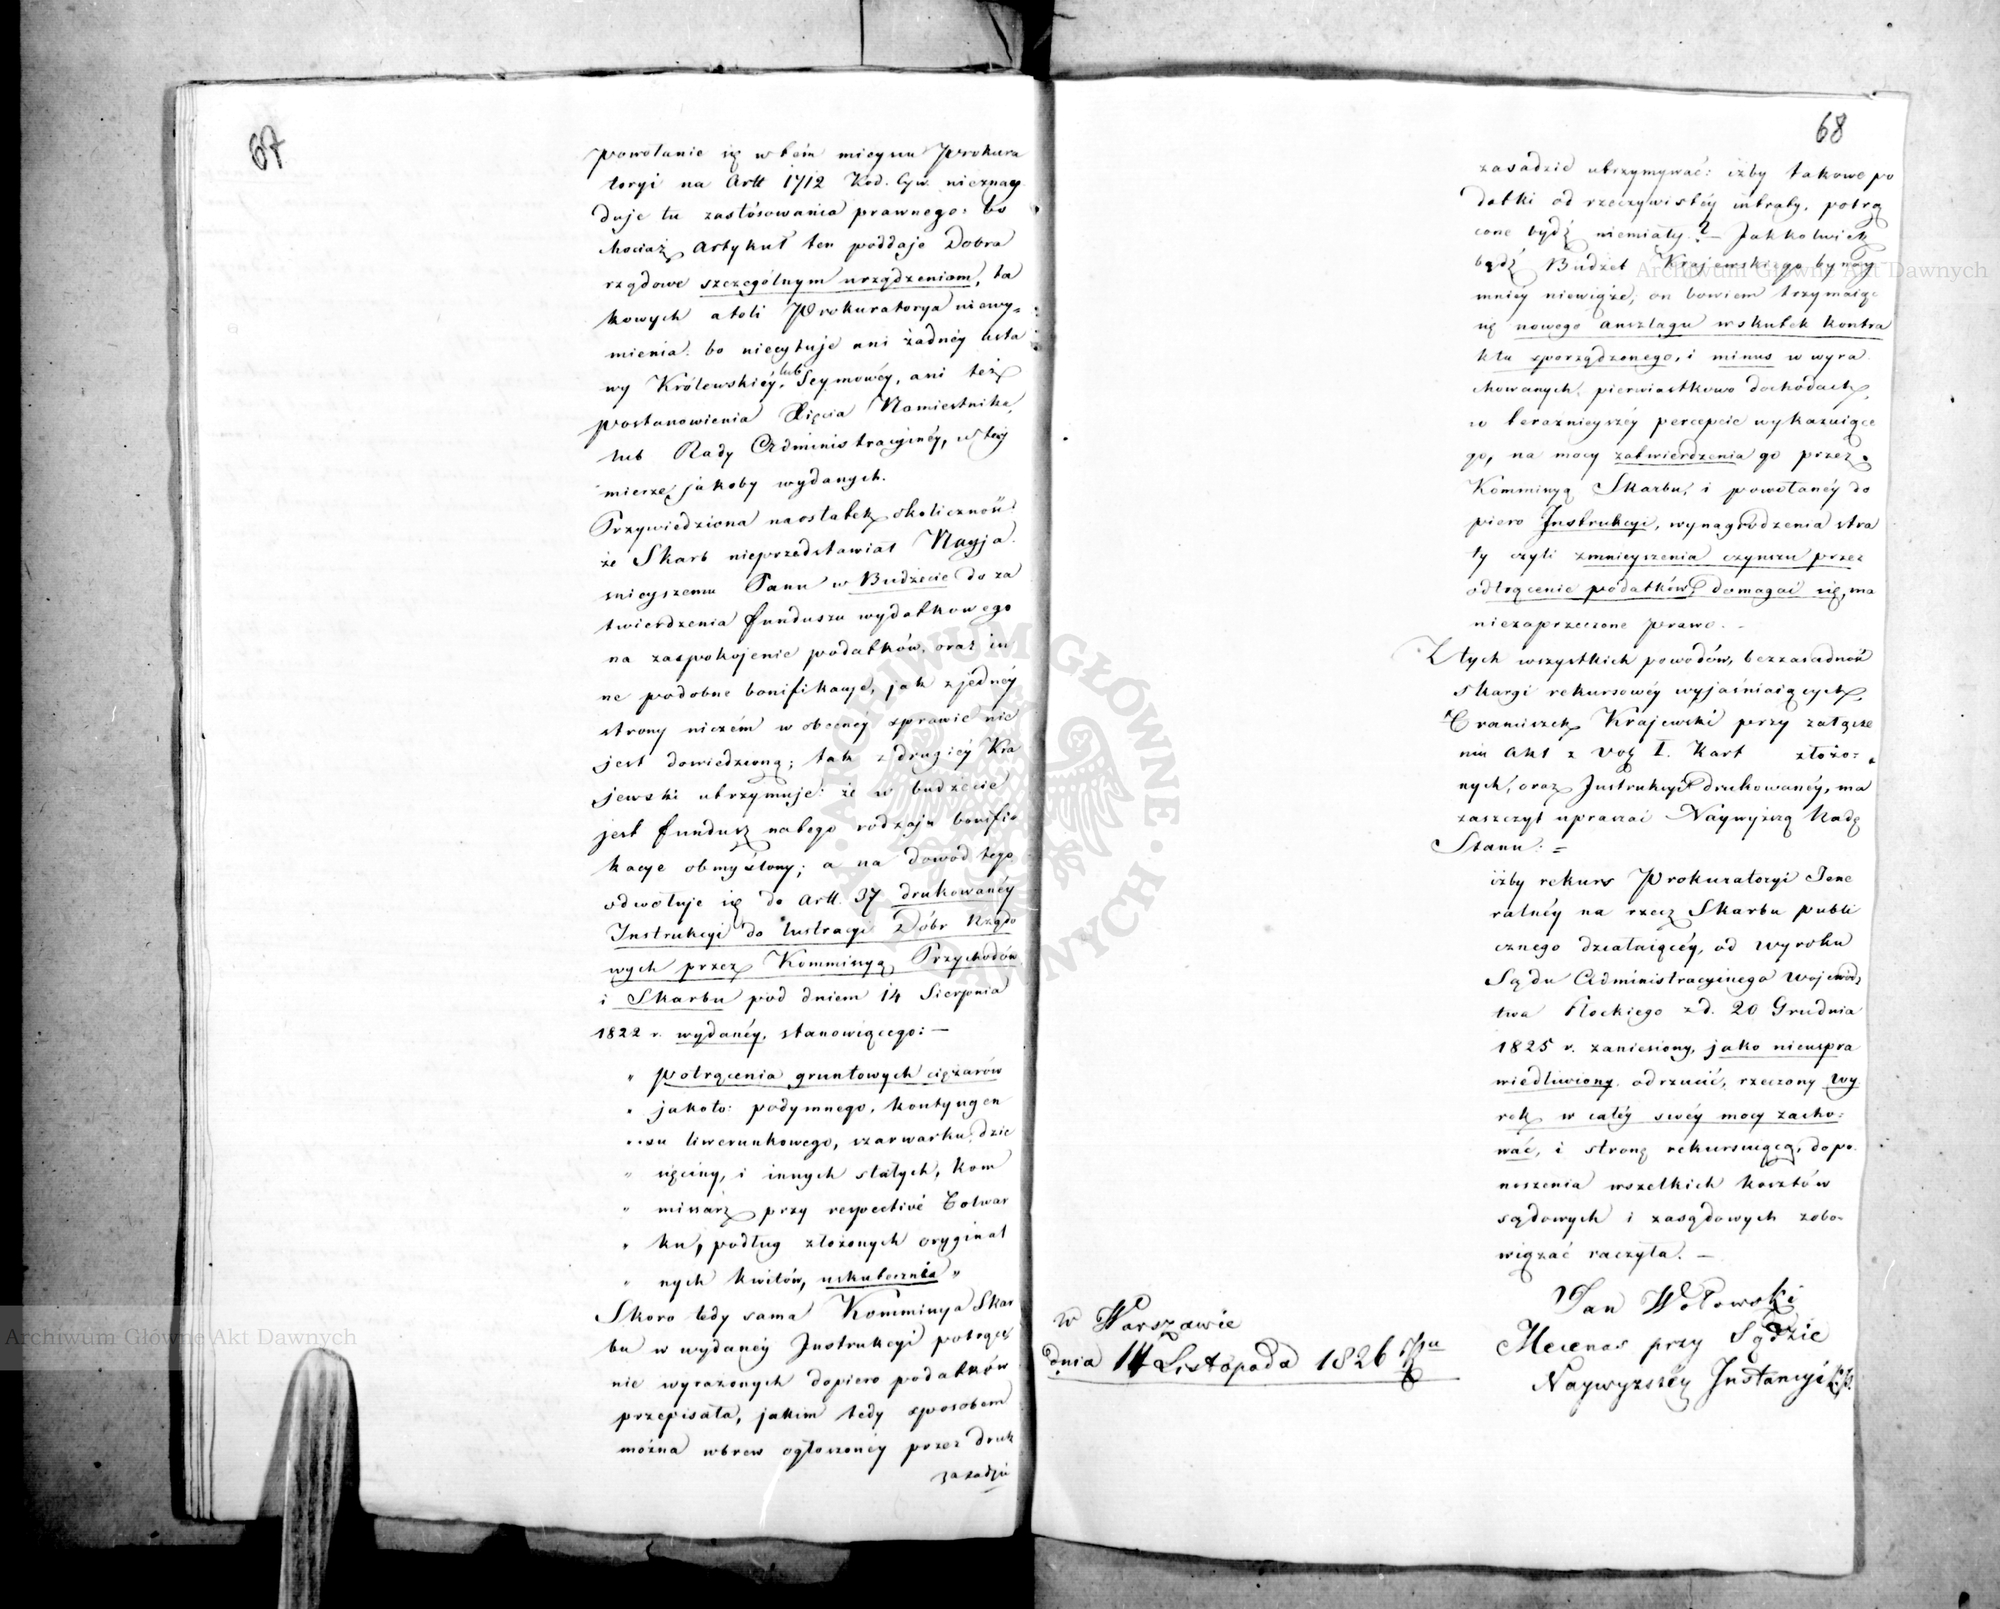 67
powołanie się w tém mieyscu Prokura
toryi na Artt 1712 Kod. Cyw. nieznay
duje tu zastósowania prawnego: bo
chociaż artykuł ten poddaje Dobra
rządowe szczególnym urządzeniom, ta
kowych atoli Prokuratorya niewy=
mienia. bo niecytuje ani żadnéy usta
wy Królewskiéy, lub Seymowéy, ani téż
postanowienia Xięcia Namiestnika,
lub Rady Administracyjnéy, w téy
mierze jakoby wydanych.
Przywiedziona naostatek okoliczność:
że Skarb nieprzedstawiał Nayja
śnieyszemu Panu w Budżecie do za
twierdzenia funduszu wydatkowego
na zaspokojenie podatków. oraz in
ne podobne bonifikacye, jak z jednéy
strony niczém w obecnéy sprawie nie
jest dowiedzioną; tak z drugiéy Kra
jewski utrzymuje: że w budżecie
jest fundusz na tego rodzaju bonifi=
kacye obmyślony; a na dowód tego
odwołuje się do Artt. 37 drukowanéy
Instrukcyi do lustracyi Dóbr Rządo
wych przez Kommissyą Przychodów
i Skarbu pod dniem 14 Sierpnia
1822 r. wydanéy, stanowiącego: —
" potrącenia gruntowych ciężarów
" jakoto: podymnego, kontyngen
" su liwerunkowego, szarwarku, dzie
" sięciny, i innych stałych, Kom
" missarz przy respective Folwar
" ku, podług złożonych oryginal
" nych kwitów, uskutecznia "
Skoro tedy sama Kommissya Skar
bu w wydanéy Instrukcyi potrące
nie wyrażonych dopiero podatków
przepisała, jakim tedy sposobem
można wbrew ogłoszonéy przez druk
zasadzie
68
zasadzie utrzymywać: iżby takowe po
datki od rzeczywistéy intraty, potrą
cone bydź niemiały? — Jakkolwiek
bądź Budżet Krajewskiego bynay
mniey niewiąże; on bowiem trzymaiąc
się nowego anszlagu w skutek kontra
ktu sporządzonego, i minus w wyra
chowanych pierwiastkowo dochodach,
w teraźnieyszéy percepcie wykazuiące
go, na mocy zatwierdzenia go przez
Kommissyą Skarbu, i powołanéy do
piero Instrukcyi, wynagrodzenia stra
ty czyli zmnieyszenia czynszu przez
odtrącenie podatków, domagać się, ma
niezaprzeczone prawo. —
Z tych wszystkich powodów, bezzasadność
skargi rekursowéy wyjaśniaiących,
Franciszek Krajewski przy załącze
niu Akt z Vol I. Kart złożo=
nych, oraz Instrukcyi drukowanéy, ma
zaszczyt upraszać Naywyższą Radę
Stanu: =
iżby rekurs Prokuratoryi Jene
ralnéy na rzecz Skarbu publi
cznego działaiącéy, od wyroku
Sądu Administracyinego Wojewódz
twa Płockiego z d. 20 Grudnia
1825 r. zaniesiony, jako nieuspra
wiedliwiony odrzucić, rzeczony wy
rok w całéy swéy mocy zacho=
wać, i stronę rekursuiącą, do po
noszenia wszelkich kosztów
sądowych i zasądowych zobo=
wiązać raczyła. —
w Warszawie
dnia 14 Listopada 1826 Rku
Jan Wołowski
Mecenas przy Sądzie
Naywyższéy Instancyi K.P.
Archiwum Główne Akt Dawnych
Archiwum Główne Akt Dawnych
ARCHIWUM GŁÓWNE AKT DAWNYCH